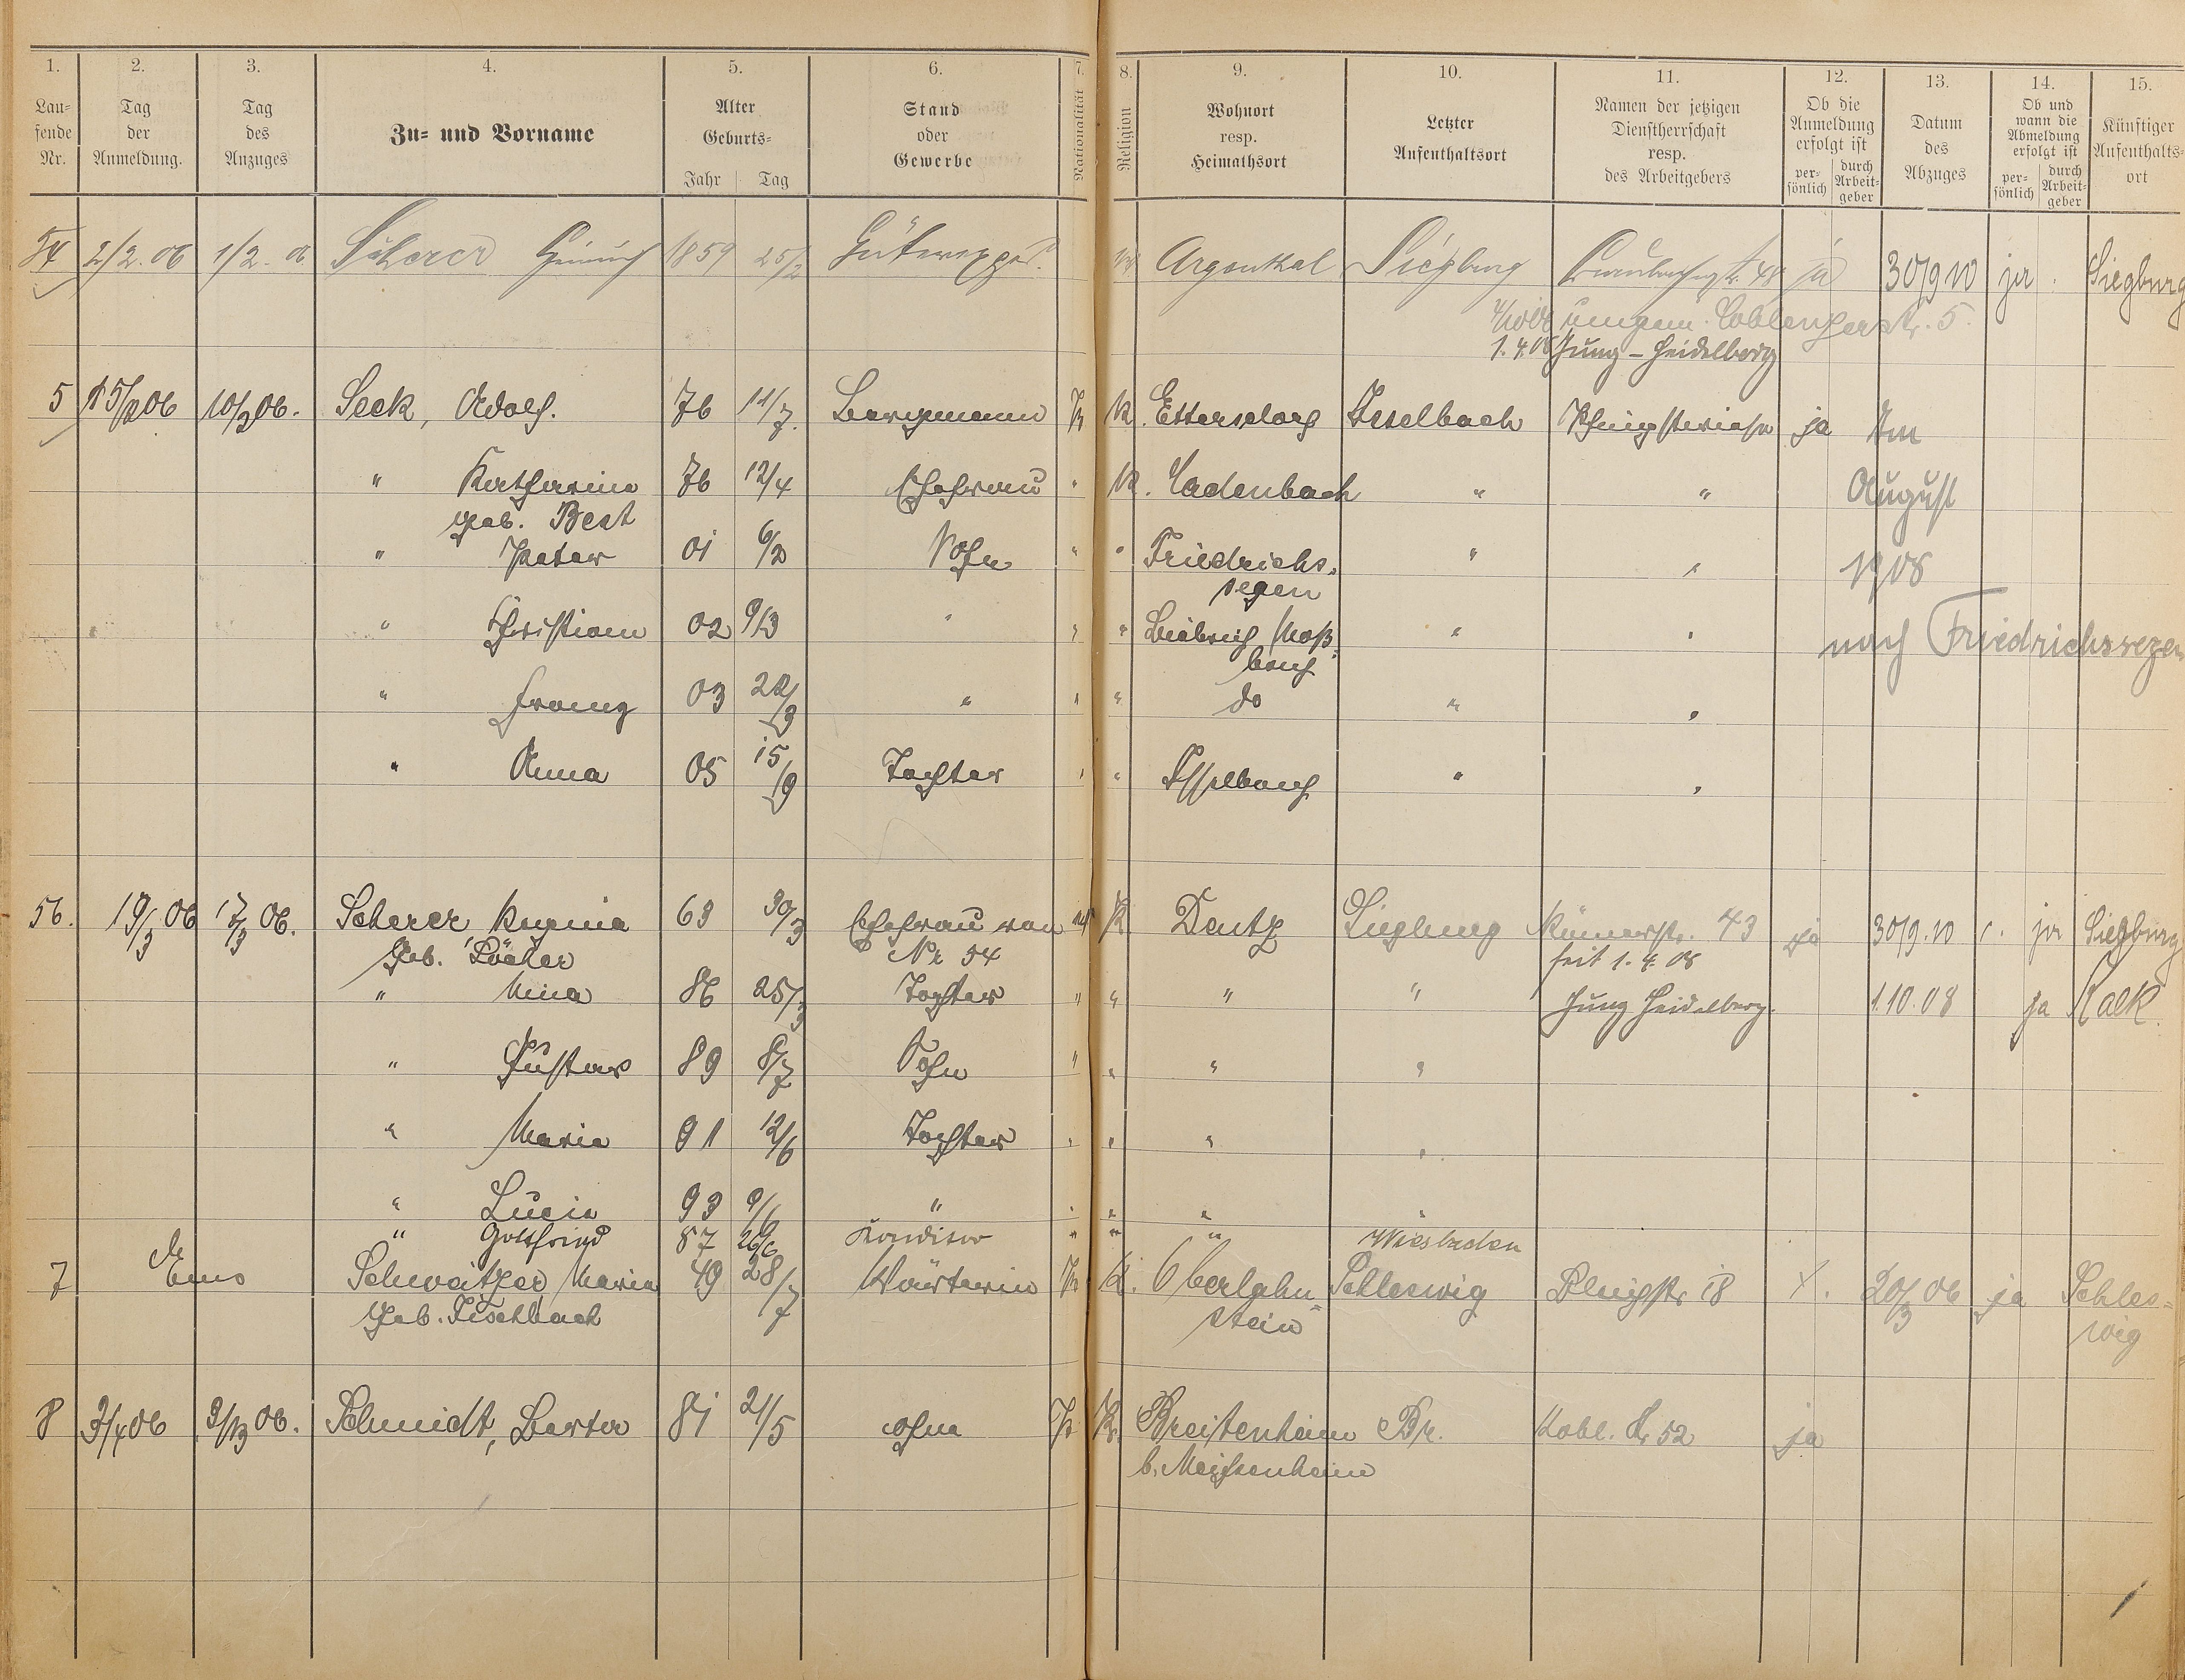 1. 2. 3. 4. 5. 6. 7. 8. 9. 10. 11. 12. 13. 14. 15.
Lau-
fende
Nr.
Tag
der
Anmeldung.
Tag
des
Anzuges
Zu- und Vorname
Alter
Geburts-
Jahr Tag
Stand
oder
Gewerbe
Nationalität
Religion
Wohnort
resp.
Heimathsort
Letzter
Aufenthaltsort
Namen der jetzigen
Dienstherrschaft
resp.
des Arbeitgebers
Ob die
Anmeldung
erfolgt ist
per-
sönlich
durch
Arbeit-
geber
Datum
des
Abzuges
Ob und
wann die
Abmeldung
erfolgt ist
per-
sönlich
durch
Arbeit-
geber
Künftiger
Aufenthalts-
ort
54 2/2. 06 1/2. 06 Scherer Heinrich 1859 25/2 Güterexped. Argenthal Siegburg 48 ja 30/9 10 ja Siegburg
umgem. Coblenzerstr. 5.
1. 4. 08 Jung-Heidelberg
5 15/2 06 10/2 06. Seck, Adolf. 76 11/7. Bergmann Pr K. Ettersdorf Isselbach Pfingstwiese ja Im
" Katharina 76 12/4 Ehefrau " K. Ladenbach " " August
geb. Best
" Peter 01 6/2 Sohn " " Friedrichs- " " 1908
segen
" Christian 02 9/3 " " " Biebrich Mos- " " nach Friedrichssegen
bach
" Franz 03 22/3 " " " do " "
" Anna 05 15/9 Tochter " " Isselbach " "
56. 19/3 06 17/3 06. Scherer Regina 63 30/3 Ehefrau von K Deutz Siegburg Römerstr. 43 ja 30/9. 10 ja Siegburg
geb. Löcher Nr 54 seit 1. 4. 08
" Mina 86 25/3 Tochter " " " " Jung Heidelberg. 1.10.08 ja Kalk.
" Gustav 89 8/7 Sohn " " " "
" Maria 91 12/6 Tochter " " " "
" Lucia 93 9/6 " " " " "
" Gottfried 87 26/6 Konditor " " " Wiesbaden
7 Ems Schweitzer, Maria 49 28/7 Wärterin Pr K. Oberlahn- Schleswig 18 20/3 06 ja Schles-
geb. Fischbach stein wig
8 3/4 06 9/3 06. Schmidt, Berta 81 21/5 ohne Pr K. Breitenheim Br. Kobl. Str 52 ja
b. Meissenheim